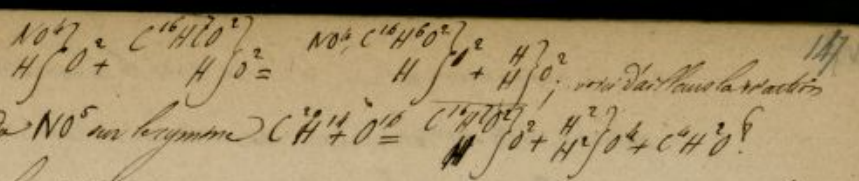 147
NO⁴ } O² + C¹⁶H⁷O² } O² = NO⁴, C¹⁶H⁶O² } O² + H } O² ; voici d'ailleurs la réaction
H H H H
de NO⁵ sur le cymène C²⁰H¹⁴ + O¹⁶ = C¹⁶H⁷O² } O² + H² } O⁴ + C⁴H²O⁸
H H²